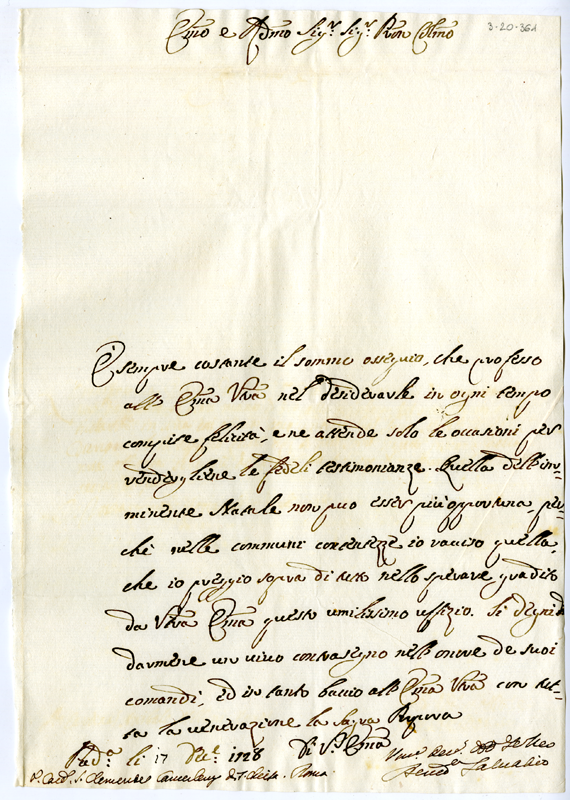 Emo e Rdmo Sigr. Sigr. Pron Colmo
3-20-361
È sempre costante il sommo ossequio, che professo
all' Emza Vrâ nel desiderarle in ogni tempo
compite felicità, e ne attende solo le occasioni per
rendergliene le fedeli testimonianze. Quella dell' im=
minente Natale non può esser più opportuna, per=
chè nelle communi contentezze io ravviso quella,
che io preggio sopra di tutto nello sperare gradito
da Vrâ Emza questo umilissimo uffizio. Si degni
darmene un vivo contrasegno nell' onore de suoi
comandi, ed in tanto baccio all' Emza Vrâ con tut=
ta la venerazione la Sagra Porpora
Padâ. li 17 Dec. 1728 Di V. Emza
Salvatico
Roma.